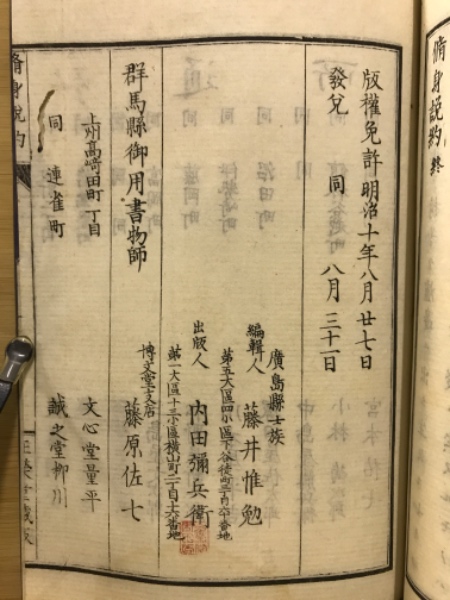 脩身説約 終
版權免許 明治十年八月廿七日
發兌 同 八月三十一日
廣島縣士族
編輯人 藤井惟勉
第五大區四小區下谷徒町三丁目六十番地
出版人 内田彌兵衛
第一大區十三小區横山町二丁目十六番地
博文堂支店
群馬縣御用書物師 藤原佐七
上州高﨑田町一丁目 文心堂量平
同 連雀町 誠之堂柳川
脩身説約